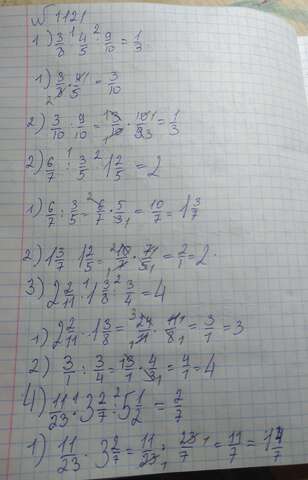 № 1121
1) 3/8 · 4/5 : 9/10 = 1/3
1) 3/8 · 4/5 = 3/10
2) 3/10 : 9/10 = 3/10 · 10/93 = 1/3
2) 6/7 : 3/5 : 1 2/5 = 2
1) 6/7 : 3/5 = 6/7 · 5/3 = 10/7 = 1 3/7
2) 1 3/7 : 1 2/5 = 10/7 · 7/5 = 2/1 = 2
3) 2 2/11 · 1 3/8 : 3/4 = 4
1) 2 2/11 · 1 3/8 = 24/11 · 11/8 = 3/1 = 3
2) 3/1 : 3/4 = 3/1 · 4/3 = 4/1 = 4
4) 11/23 · 3 2/7 : 5 1/2 = 2/7
1) 11/23 · 3 2/7 = 11/23 · 23/7 = 11/7 = 1 4/7